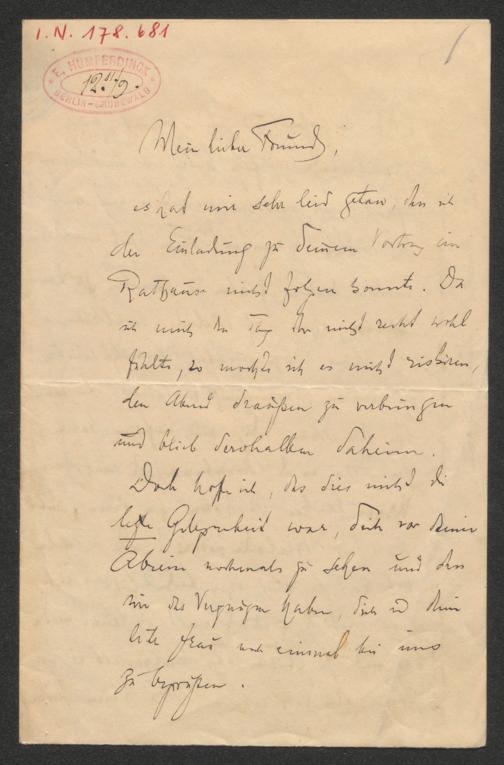 I. N. 178.681
E. HUMPERDINCK
BERLIN-GRUNEWALD
Mein lieber Freund,
es hat mir sehr leid getan, dass ich
der Einladung zu deinem Vortrag im
Rathause nicht folgen konnte. Da
ich mich den Tag über nicht recht wohl
fühlte, so mochte ich es nicht riskiren,
den Abend draußen zu verbringen
und blieb derohalben daheim.
Doch hoffe ich, das dies nicht die
letzte Gelegenheit war, dich vor deiner
Abreise nochmals zu sehen und dass
wir das Vergnügen haben, dich und deine
liebe Frau noch einmal bei uns
zu begrüßen.